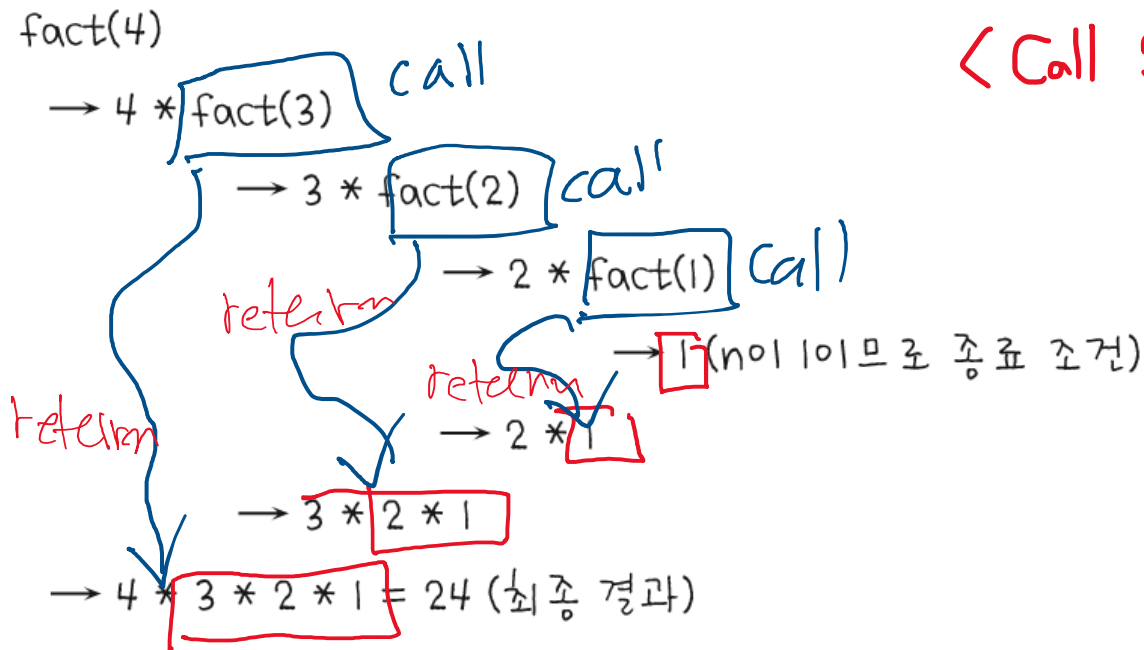 fact(4)
< Call
→ 4 * fact(3) call
→ 3 * fact(2) call
→ 2 * fact(1) call
→ 1 (n이 1이므로 종료 조건)
return
return
→ 2 * 1
return
→ 3 * 2 * 1
→ 4 * 3 * 2 * 1 = 24 (최종 결과)